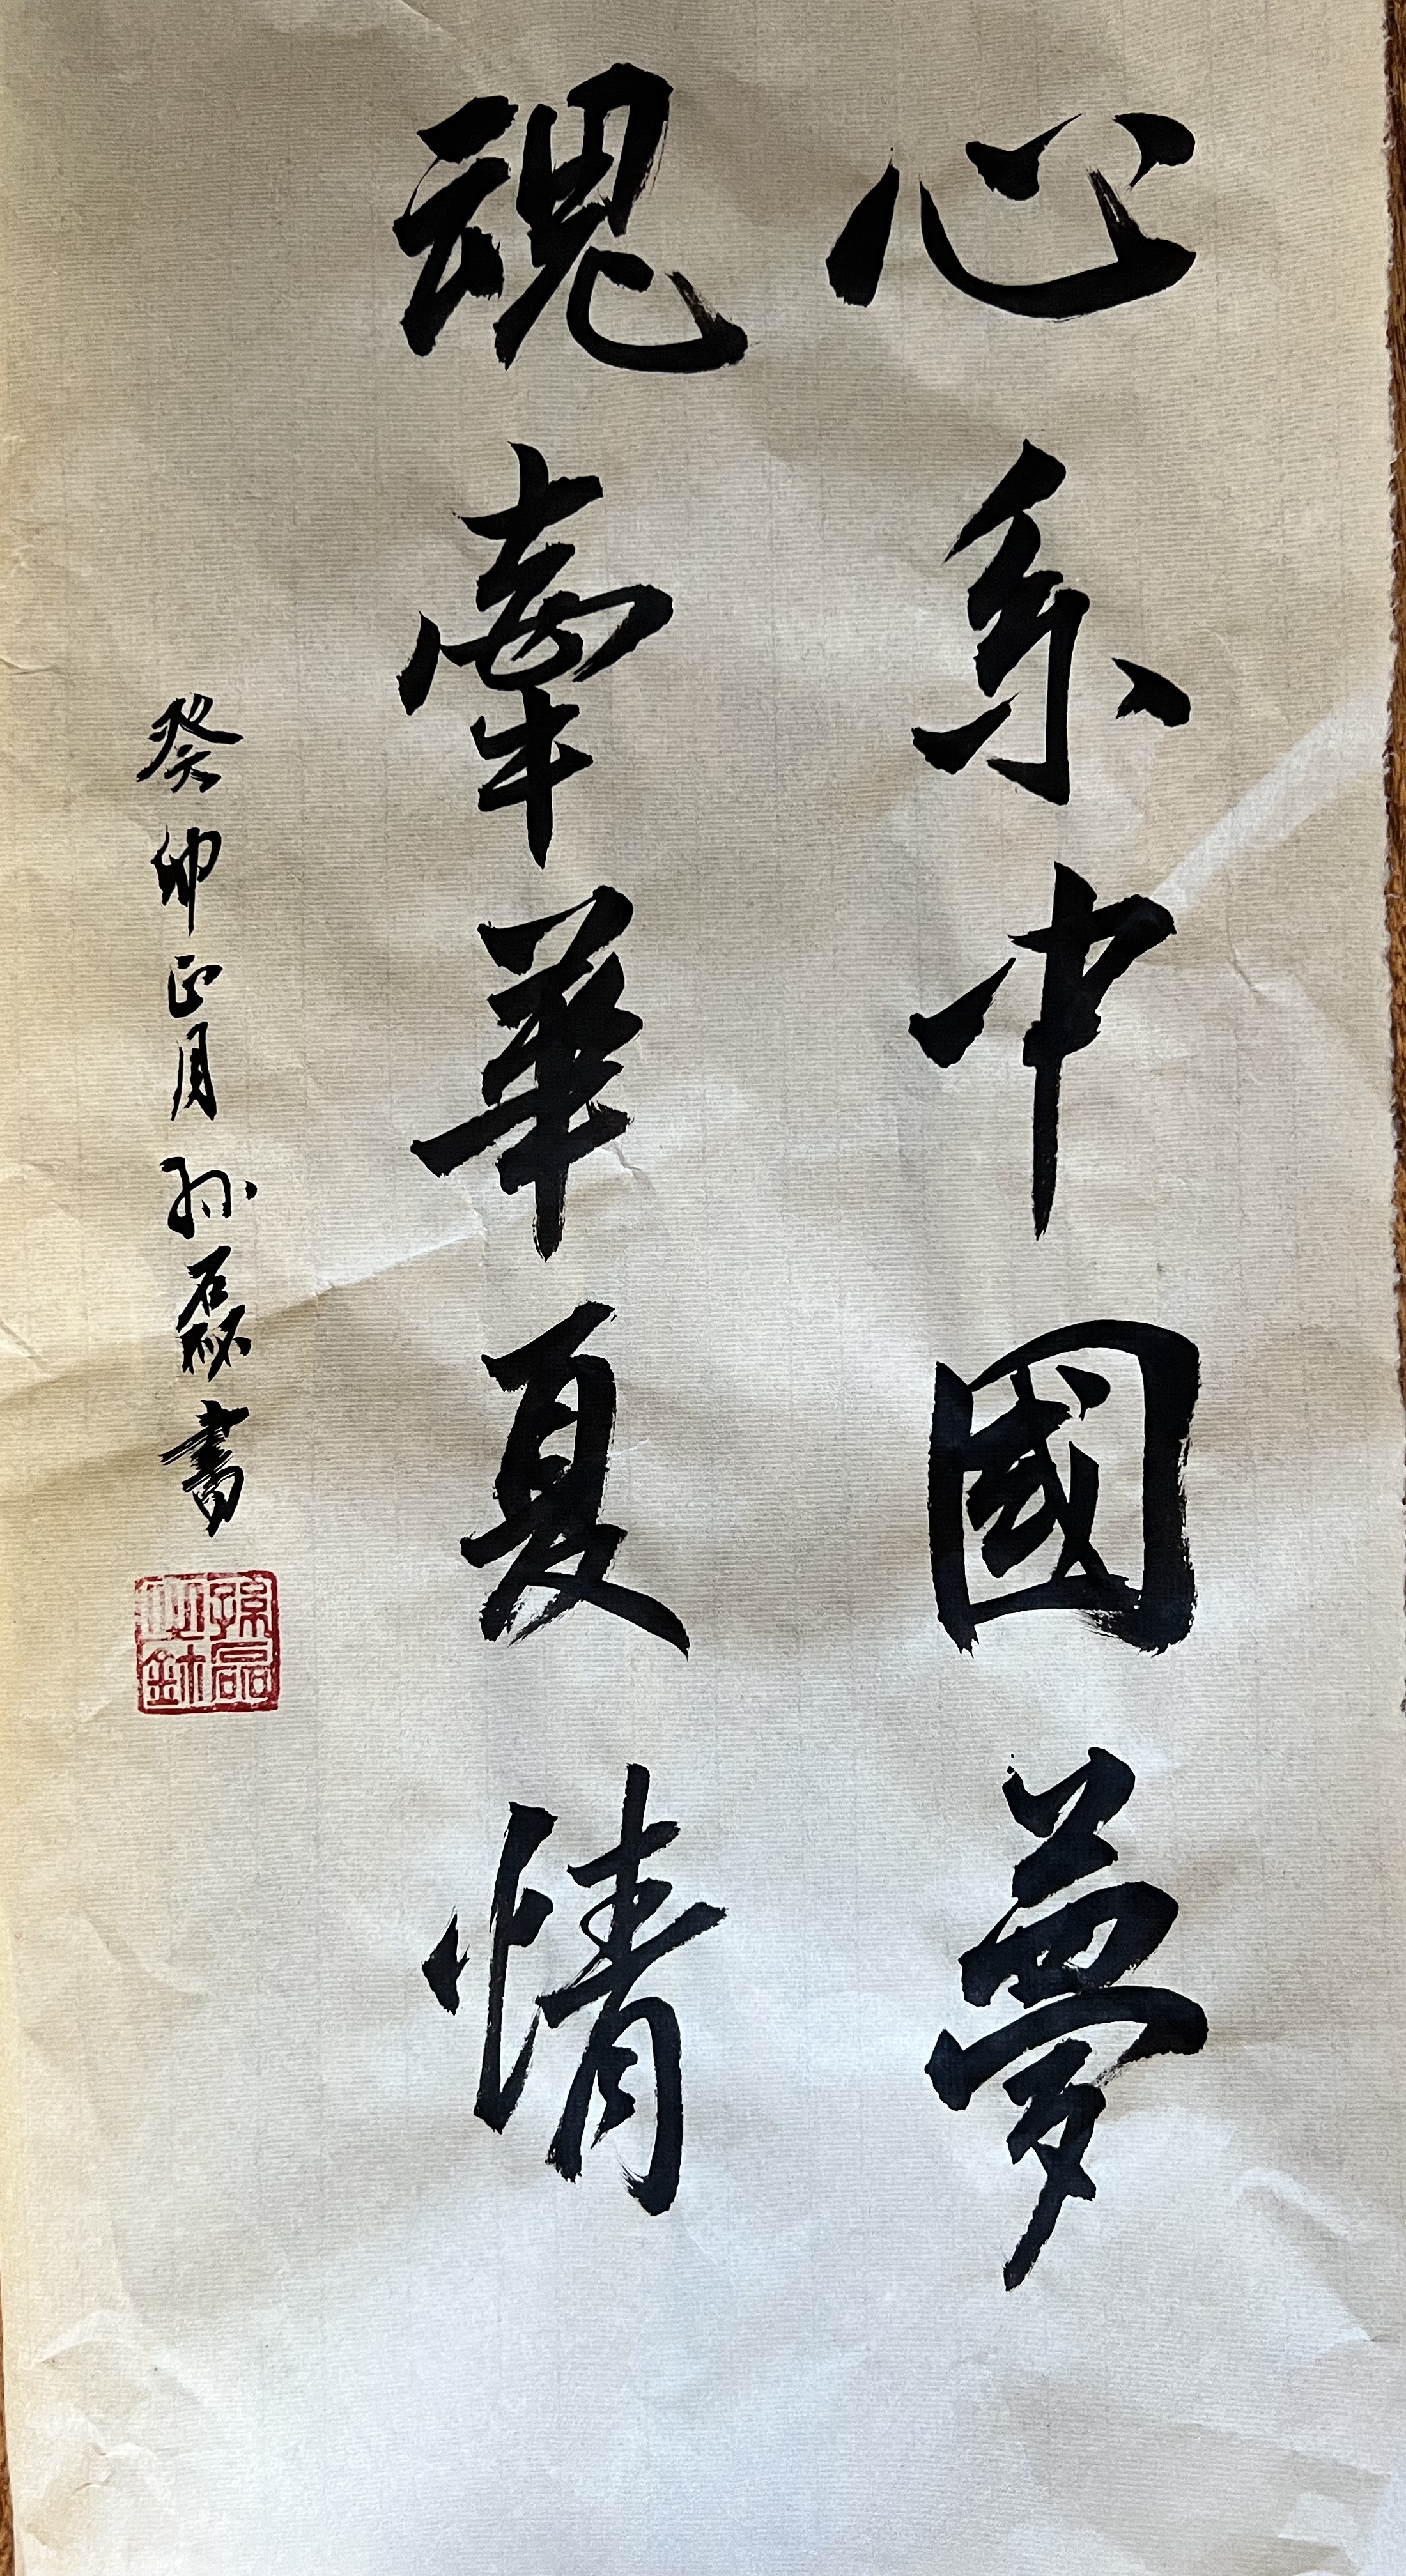 心系中國夢
魂牽華夏情
癸卯正月孙磊書
孫磊